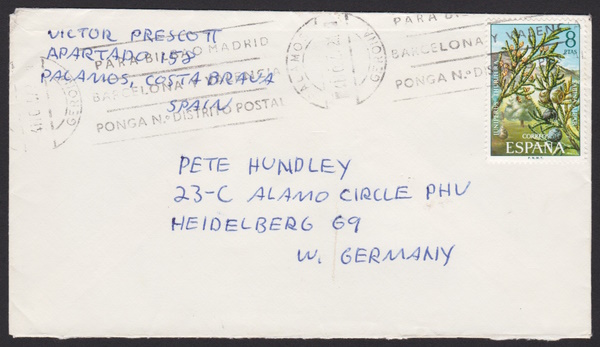 VICTOR PRESCOTT
APARTADO 158
PALAMOS, COSTA BRAVA
SPAIN
PARA BILBAO MADRID
BARCELONA Y VALENCIA
PONGA N.º DISTRITO POSTAL
PALAMOS
GERONA
PARA BIL
BARCELONA Y VALENC
PONGA N.º DIST
8
PTAS
CORREOS
ESPAÑA
PETE HUNDLEY
23-C ALAMO CIRCLE PHV
HEIDELBERG 69
W. GERMANY